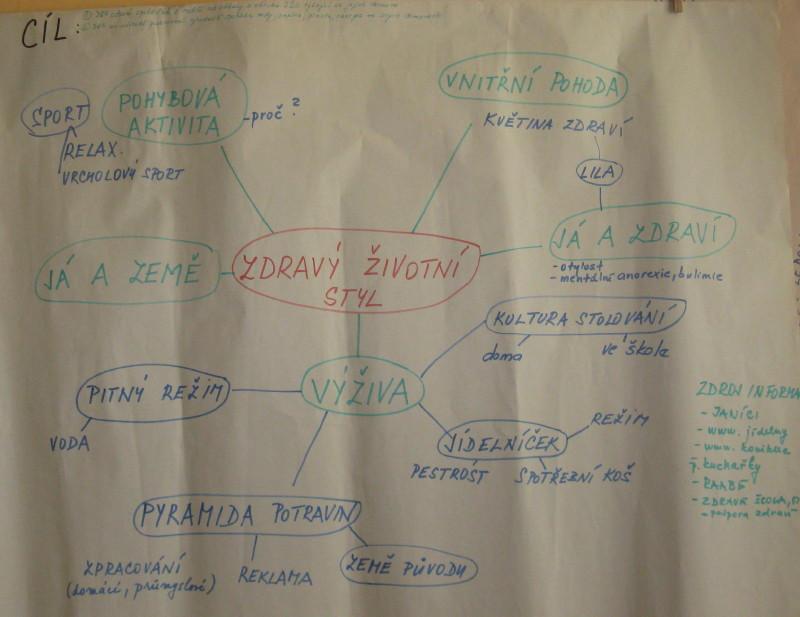 CÍL:
POHYBOVÁ
AKTIVITA
- proč ?
SPORT
RELAX
VRCHOLOVÝ SPORT
VNITŘNÍ POHODA
KVĚTINA ZDRAVÍ
LILA
JÁ A ZDRAVÍ
- otylost
- mentální anorexie, bulimie
JÁ A ZEMĚ
ZDRAVÝ ŽIVOTNÍ
STYL
KULTURA STOLOVÁNÍ
doma
ve škole
VÝŽIVA
PITNÝ REŽIM
VODA
JÍDELNÍČEK
REŽIM
PESTROST
SPOTŘEBNÍ KOŠ
PYRAMIDA POTRAVIN
ZPRACOVÁNÍ
(domácí, průmyslové)
REKLAMA
ZEMĚ PŮVODU
ZDROJ INFORMA
- JANÍCI
- www. jídelny
- www.
kuchařky
- RAABE
- ZDRAVÁ ŠKOLA,
- podpora zdraví